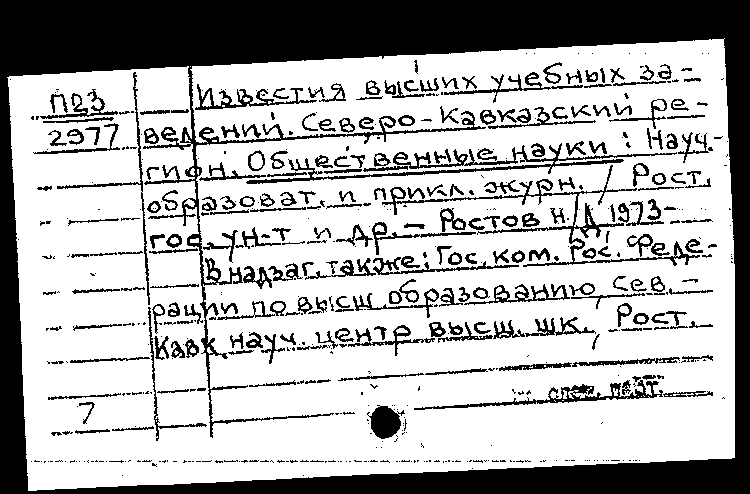 П23
2977
Известия высших учебных за-
ведений. Северо-Кавказский ре-
гион. Общественные науки : Науч.-
образоват. и прикл. журн. / Рост.
гос. ун-т и др. – Ростов н/Д 1973-
В надзаг. также: Гос. ком. Рос. Феде-
рации по высш образованию, Сев.-
Кавк. науч. центр высш. шк., Рост.
7